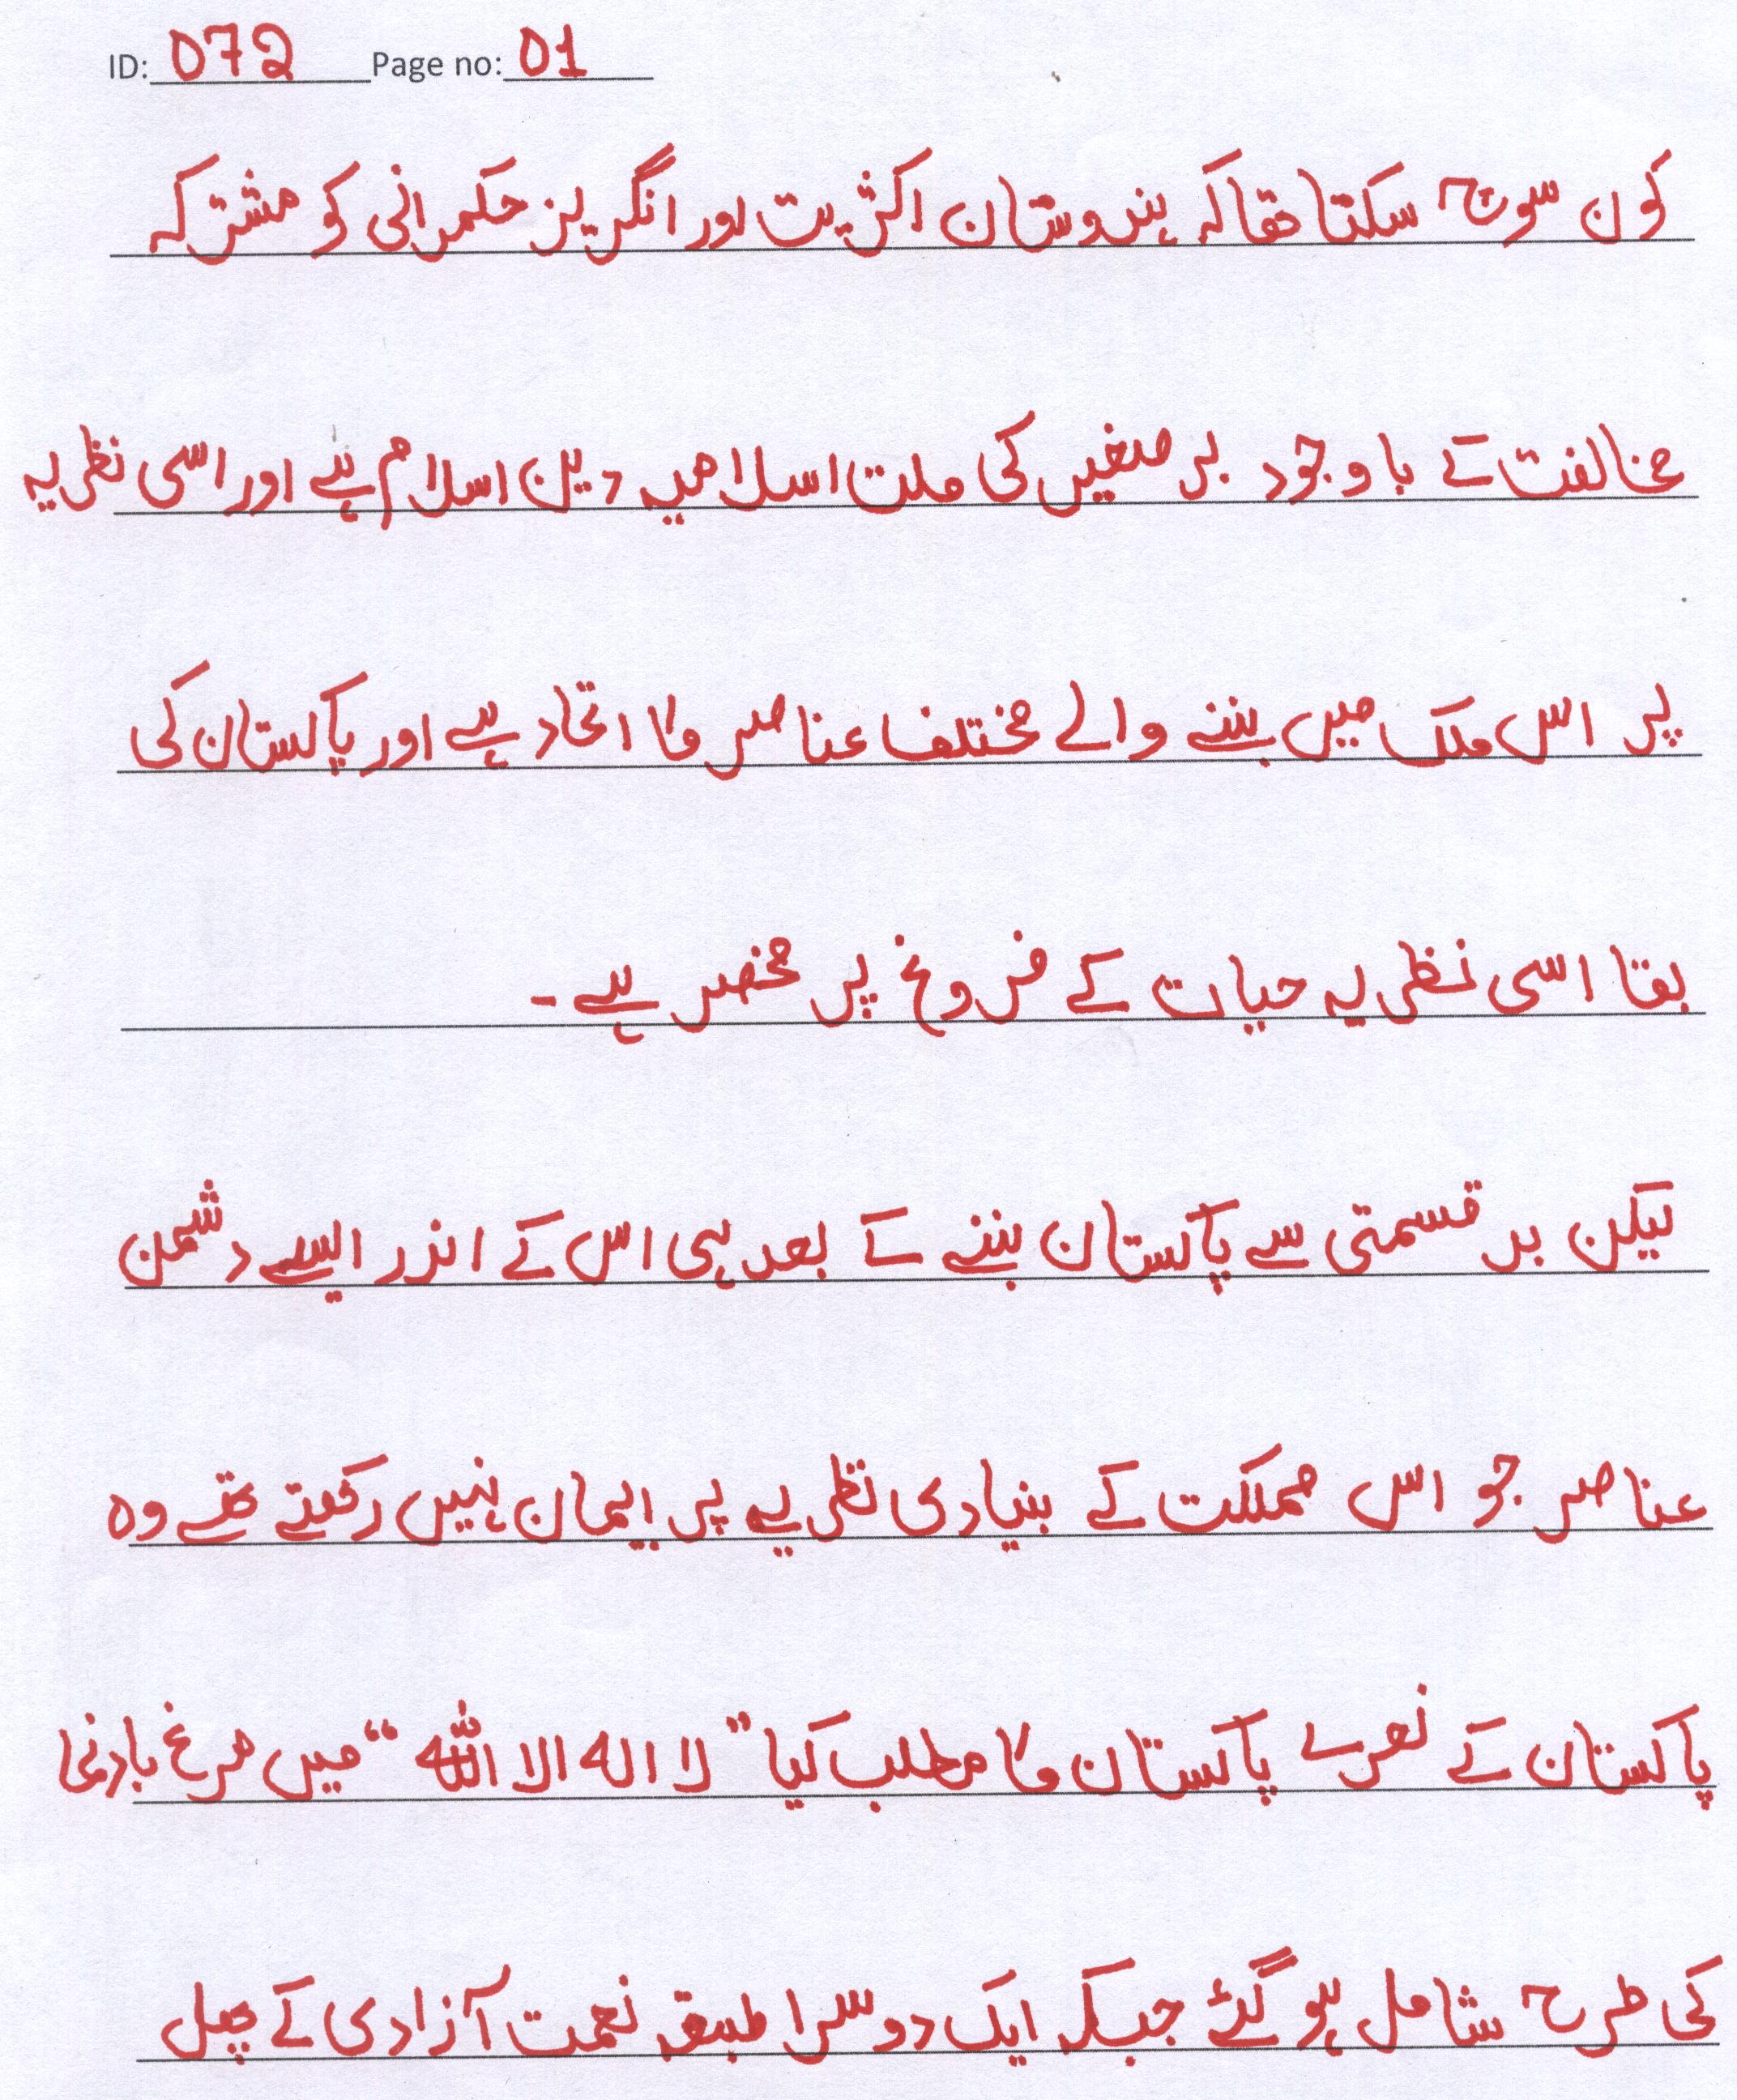 ID: 072 Page no: 01
کون سوچ سکتا تھا کہ ہندوستان اکثریت اور انگریز حکمرانی کو مشترکہ
مخالفت کے باوجود برصغیر کی ملت اسلامیہ دین اسلام ہے اور اسی نظریہ
پر اس ملک میں بننے والے مختلف عناصر کا اتحاد ہے اور پاکستان کی
بقا اسی نظریہ حیات کے فروغ پر منحصر ہے۔
لیکن بدقسمتی سے پاکستان بننے کے بعد ہی اس کے اندر ایسے دشمن
عناصر جو اس مملکت کے بنیادی نظریے پر ایمان نہیں رکھتے تھے وہ
پاکستان کے نعرے پاکستان کا مطلب کیا "لا الہ الا اللہ" میں مرغ بادنما
کی طرح شامل ہو گئے جبکہ ایک دوسرا طبقہ نعمت آزادی کے پھل